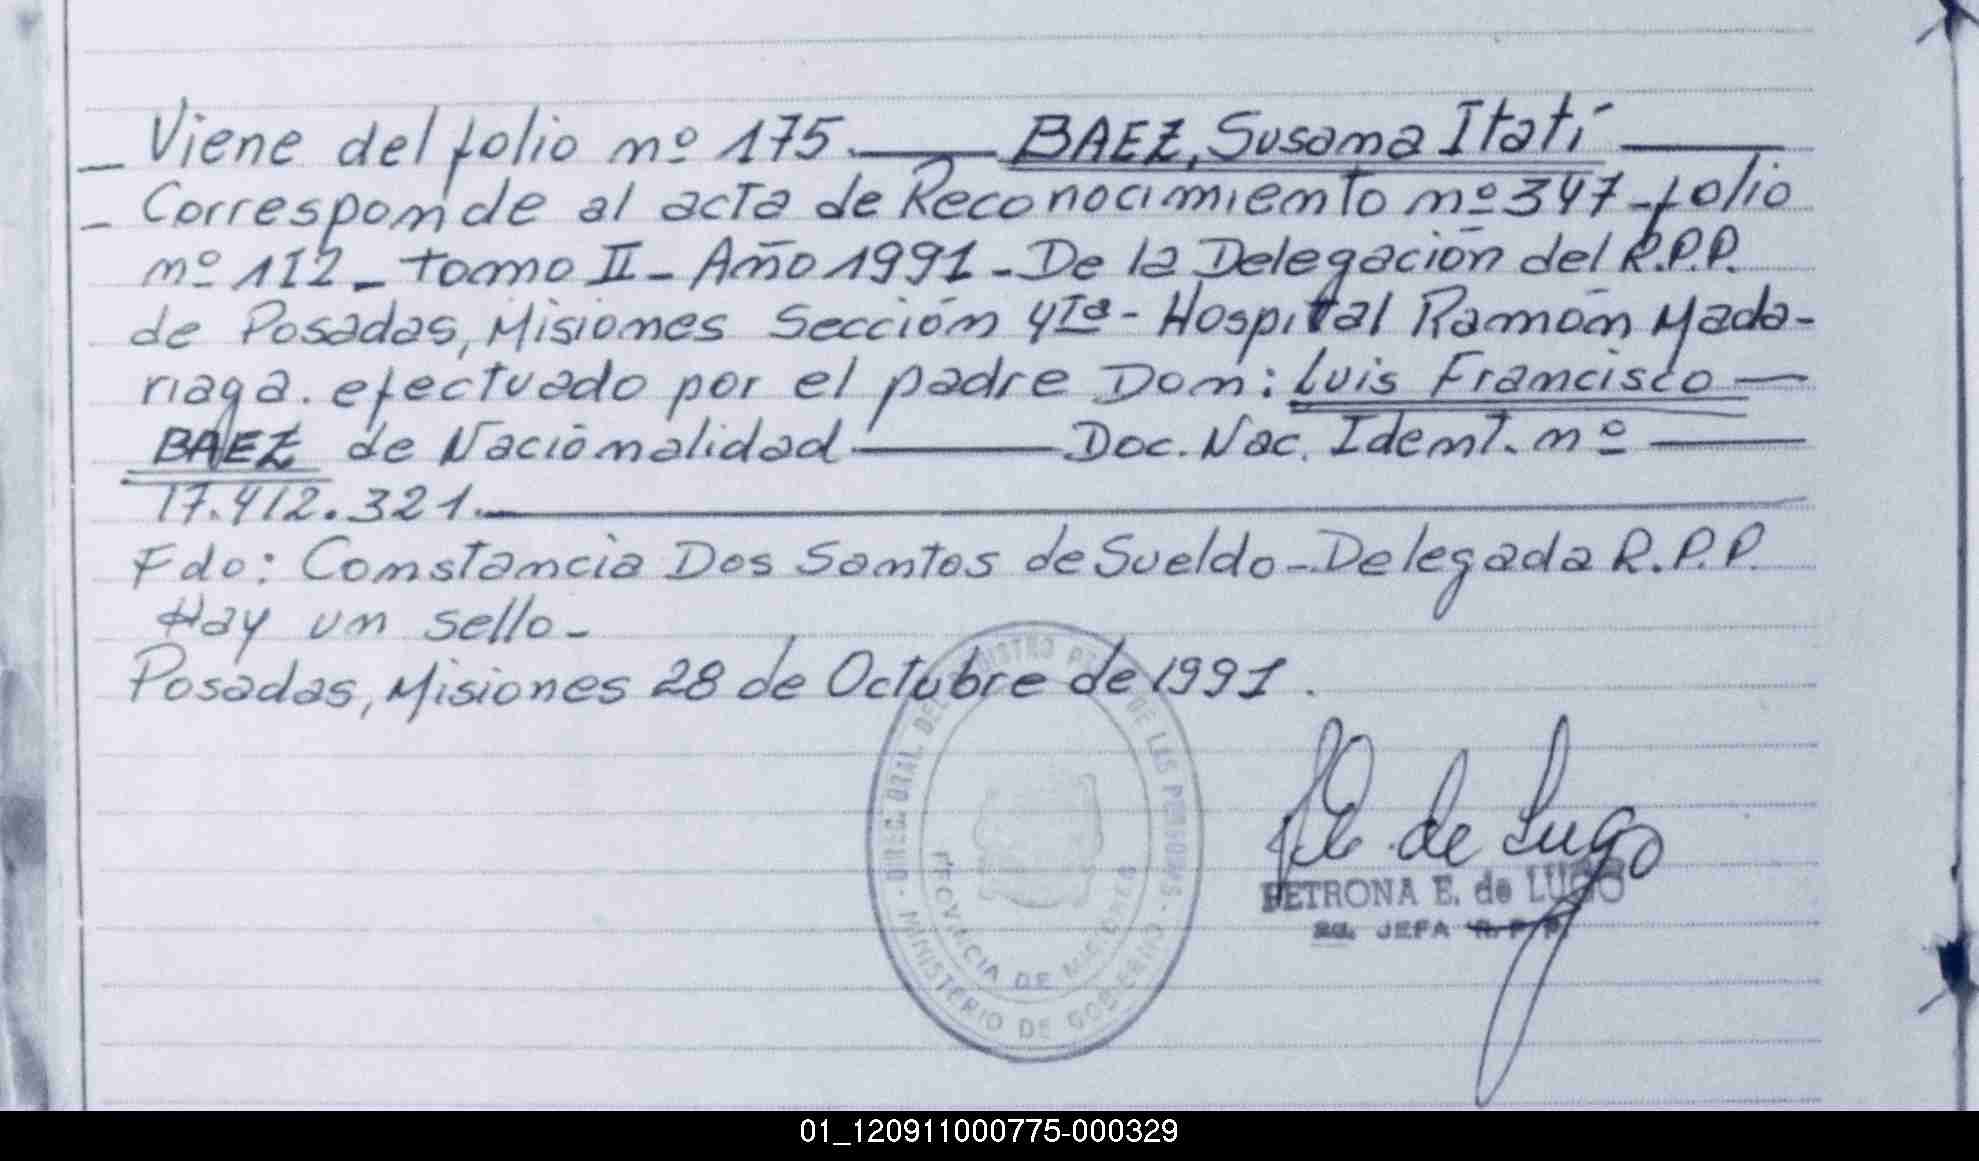 _ Viene del folio nº 175.____ BAEZ, Susana Itatí ____
_ Corresponde al acta de Reconocimiento nº 347_folio
nº 112_ tomo II_ Año 1991_De la Delegación del R.P.P.
de Posadas, Misiones Sección 4Ta- Hospital Ramón Mada-
riaga. efectuado por el padre Don: Luis Francisco —
BAEZ de Nacionalidad ____ Doc. Nac. Ident. nº ____
17.412.321.____
Fdo: Constancia Dos Santos de Sueldo_Delegada R.P.P.
Hay un sello_
Posadas, Misiones 28 de Octubre de 1991.
GRAL. DEL REGISTRO DE LAS PERSONAS -
MINISTERIO DE GOBIERNO
PROVINCIA DE MISIONES
P.E. de Lugo
PETRONA E. de LUGO
JEFA R.P.P.
01_120911000775-000329